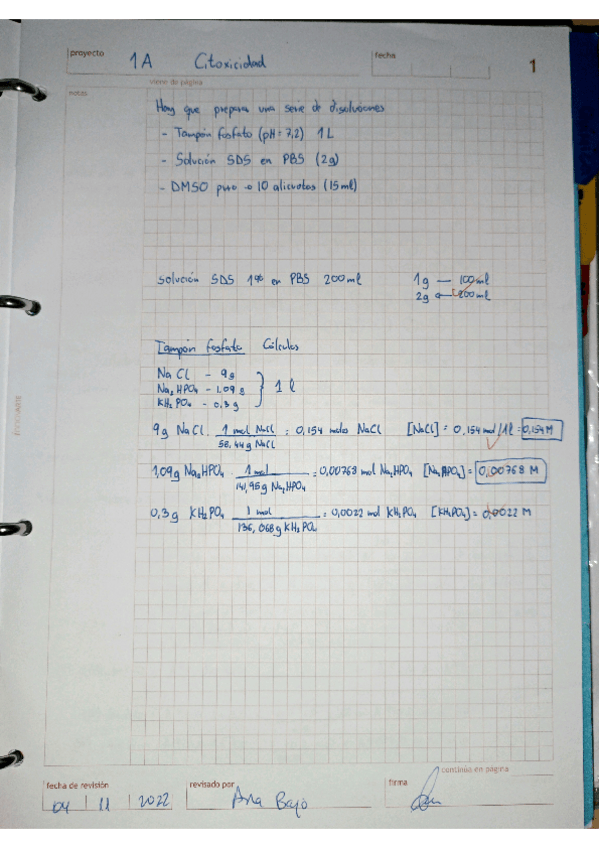 proyecto 1A Citoxicidad fecha 1
viene de página
notas
Hay que preparar una serie de disoluciones
- Tampón fosfato (pH = 7,2) 1 L
- Solución SDS en PBS (2g)
- DMSO puro → 10 alicuotas (15 ml)
Solución SDS 1% en PBS 200 ml 1g — 100 ml
2g ← 200 ml
Tampón fosfato Cálculos
NaCl - 9g
Na2HPO4 - 1,09 g } 1 l
KH2PO4 - 0,3 g
9g NaCl · 1 mol NaCl / 58,44 g NaCl = 0,154 mols NaCl [NaCl] = 0,154 mol/1l = 0,154 M
1,09g Na2HPO4 · 1 mol / 141,95 g Na2HPO4 = 0,00768 mol Na2HPO4 [Na2HPO4] = 0,00768 M
0,3 g KH2PO4 · 1 mol / 136,068 g KH2PO4 = 0,0022 mol KH2PO4 [KH2PO4] = 0,0022 M
continúa en página
fecha de revisión 04 11 2022 revisado por Ana Bajo firma